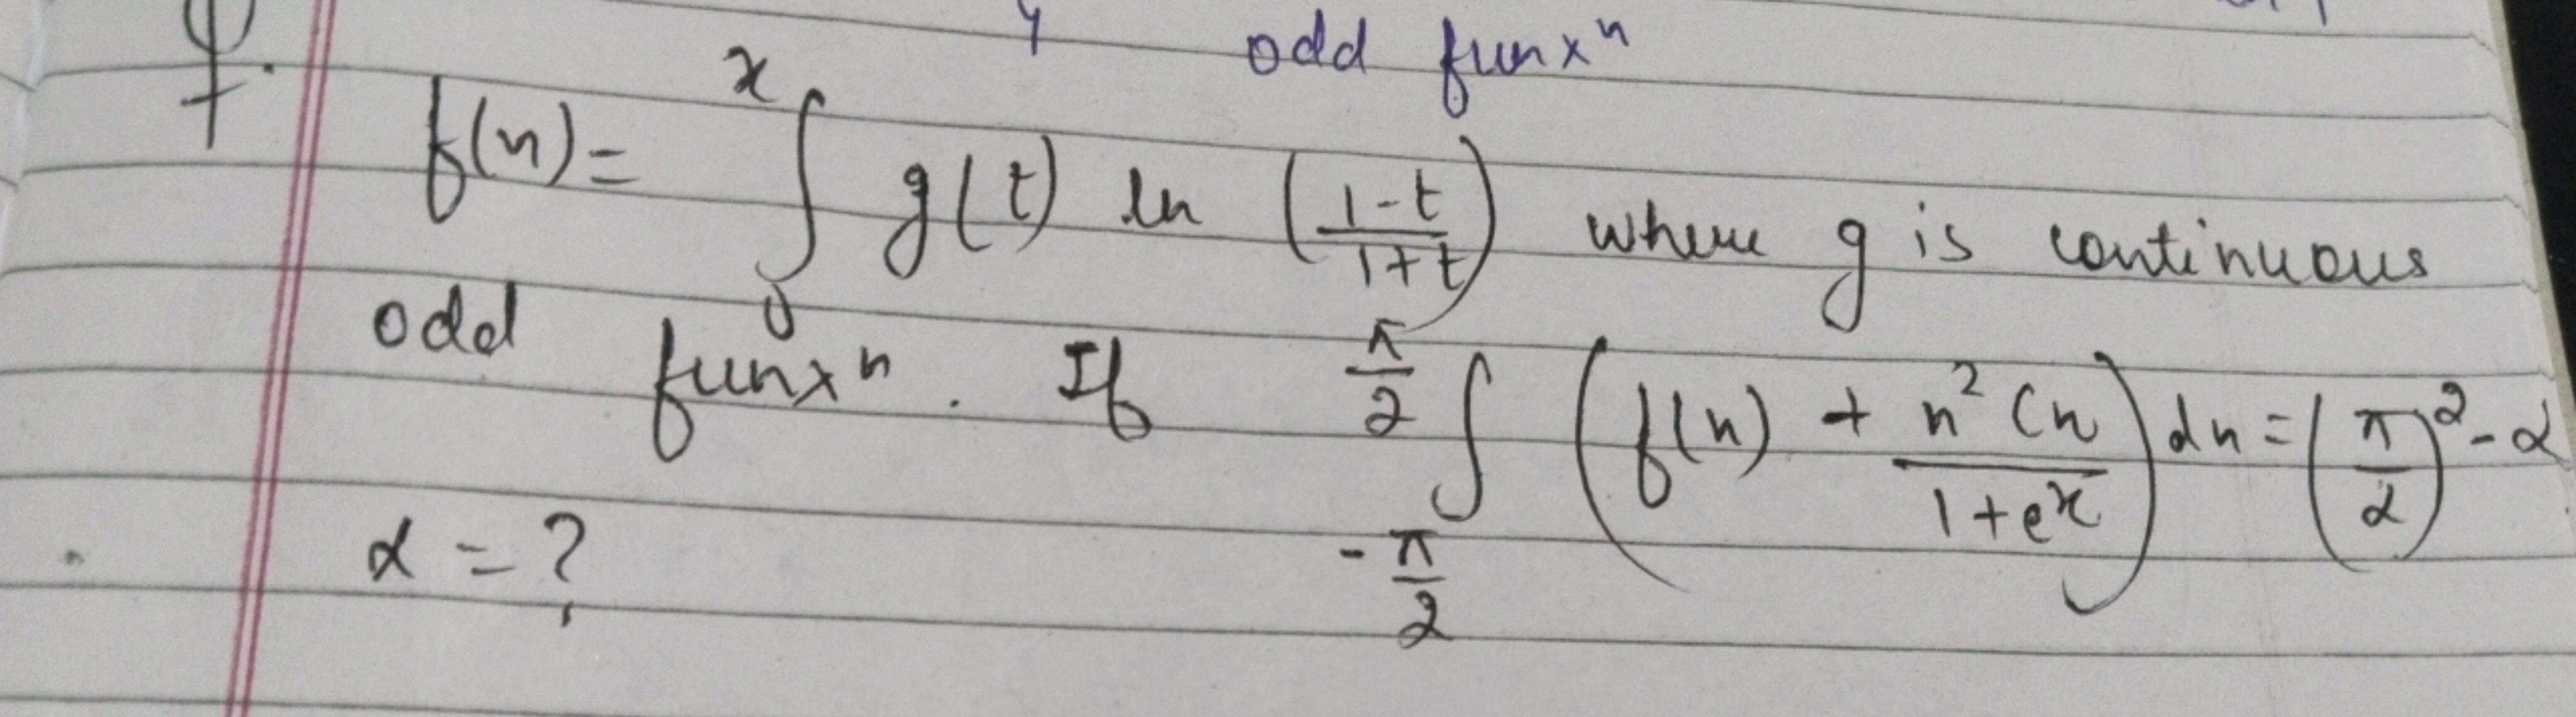 odd funxⁿ
f(n) = ∫₀ˣ g(t) ln ((1-t)/(1+t)) where g is continuous
odd funxⁿ. If ∫_{-π/2}^{π/2} (f(n) + (n² Cn)/(1+eˣ)) dn = (π/α)² - α
α = ?